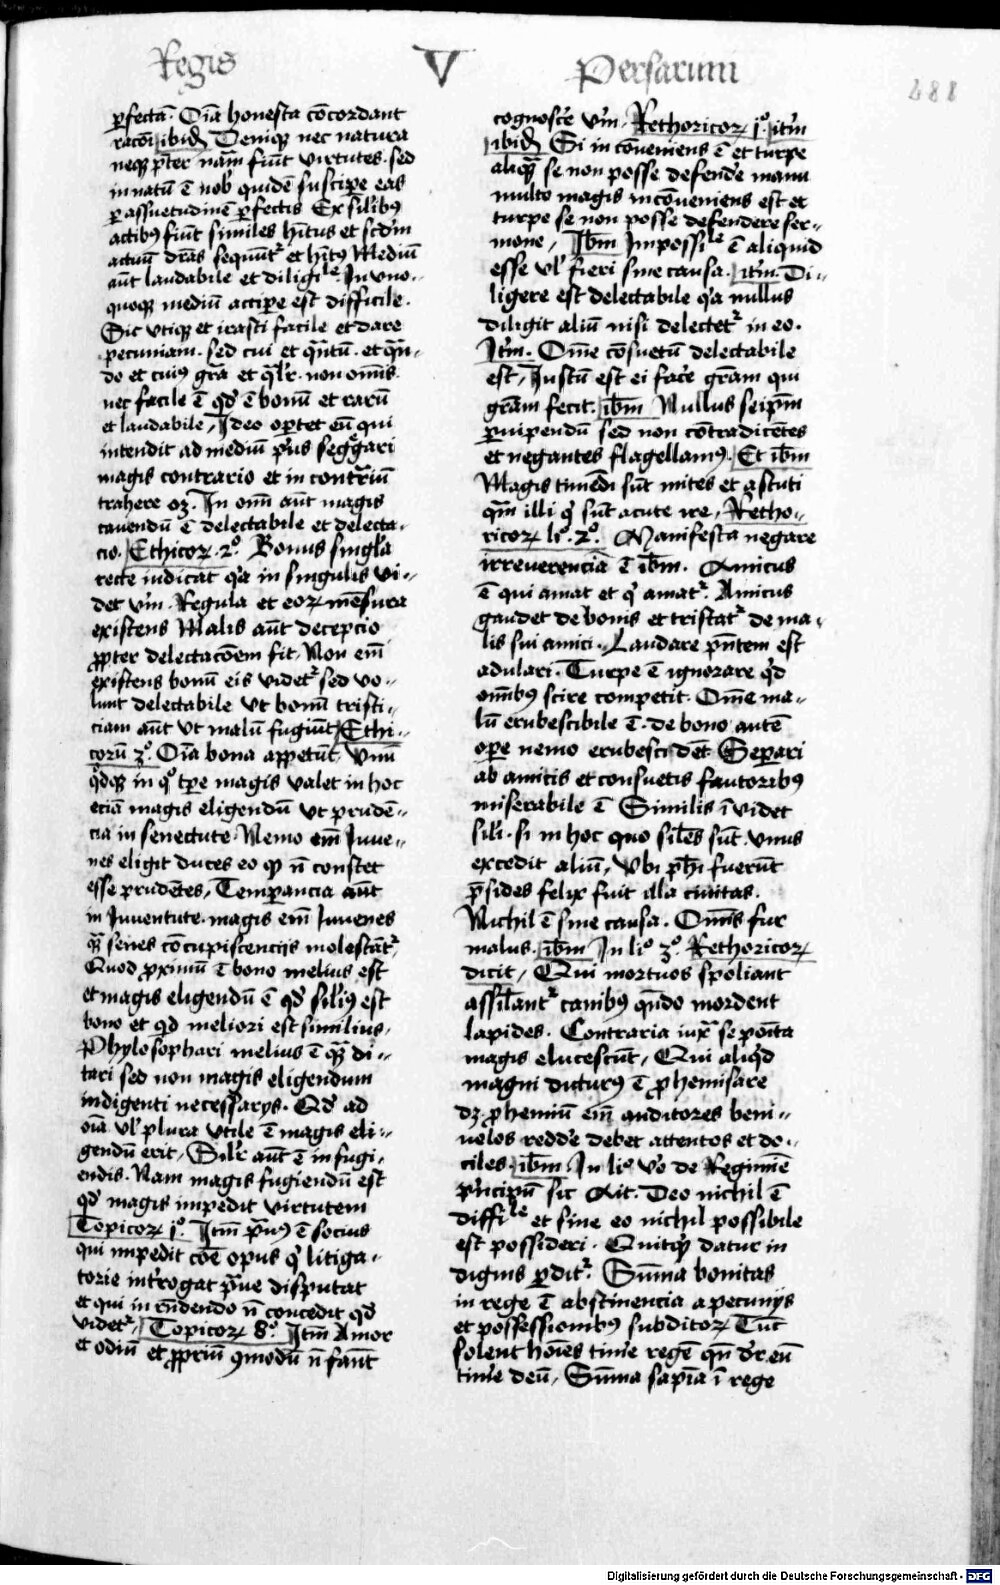 Regis V Persarum
488
ꝑfecta᷑. Oīa honesta cōcordant
racōi ibid᷑ Deniqꝫ nec natura
neqꝫ p̄ter nām fiūt virtutes. sed
innatū ē nob̛ quidē suscipe eas
ꝑ assuetudinē ꝑfectis Ex silibꝰ
actibꝰ fiūt similes hītus et scd̄m
actuū dr̄as sequūt᷑ et hītꝰ Mediū
aūt laudabile et diligile. In vno⸗
quoqꝫ mediū accipe est difficile.
Sic vtiqꝫ et irasci facile et dare
pecuniam. sed cui et qn̄tū. et qn̄⸗
do et cuiꝰ gr̄a et ql̄r. non omīs.
nec facile ē qd̛ ē bonū et rarū
et laudabile, Ideo oꝑtet eū qui
intendit ad mediū pͥus seggͣri
magis contrario et in contrͣiū
trahere oꝫ. In omī aūt magis
cauendū ē delectabile et delecta⸗
cio. Ethicoꝝ. 2°. Bonus singla
recte iudicat qꝛ in singulis vi⸗
det vim. Regula et eoꝝ mēsura
existens Malis aūt decepcio
ꝓpter delectacōem fit, Non em̄
existens bonū eis videt᷑ sed vo⸗
lunt delectabile vt bonū tristi⸗
ciam aūt vt malū fugiūt Ethi⸗
corū 3°. Oīa bona appetūt. Vnū
qd̛qꝫ in qͦ tꝑe magis valet in hoc
eciā magis eligendū vt prudē⸗
cia in senectute. Nemo em̄ Iuue⸗
nes eligit duces eo qꝫ n̄ constet
esse prudētes, Temꝑancia aūt
in Iuuentute. magis em̄ Iuuenes
qͣꝫ senes cōcupiscencijs molestāt᷑,
Quod ꝓximiū ē bono melius est
et magis eligendū ē qd̛ siliꝰ est
bono et qd meliori est similius,
Phylosophari melius ē qͣꝫ di⸗
tari sed non magis eligendum
indigenti necessarys. Qd̛ ad
oīa vl̛ plura vtile ē magis eli⸗
gendū erit, Silr̄ aūt ē in fugi⸗
endis. Nam magis fugiendū est
qd̛ magis impedit virtutem
Topicoꝝ 1°. Itm̄ prͣuꝰ ē socius
qui impedit cōe opus qͥ litiga⸗
torie int̛rogat prͣue disputat
et qui in rn̄dendo n̄ concedit qd̛
videt᷑, Topicoꝝ 8°. Itm̄ Amor
et odiū et ꝓpriū ꝯmodū n̄ faūt
cognosce̛ vm̄. Rethoricoꝝ 1°. itm̄
ibid᷑ Si inconueniens ē et turpe
aliqͣ se non posse defende̛ manu
multo magis inconueniens est et
turpe se non posse defendere ser⸗
mone, Ibm̄ Impossile ē aliquid
esse vl̛ fieri sine causa. itm̄. Di⸗
ligere est delectabile qꝛ nullus
diligit aliū nisi delectet᷑ in eo.
Itm̄. Om̄e cōsuetū delectabile
est, Iustū est ei face̛ gr̄am qui
gr̄am fecit. ibm̄ Nullus seip̄m
ꝑuipendū sed non cōtradicētes
et negantes flagellamꝰ. Et ibm̄
Magis timēdi sūt mites et astuti
qͣm illi qͥ sūt acute ire, Retho⸗
ricoꝝ li°. 2°. Manifesta negare
irreuerencia ē ibm̄. Amicus
ē qui amat et qͥ amat᷑. Amicus
gaudet de bonis et tristat᷑ de ma⸗
lis sui amici. Laudare pn̄tem est
adulari. Turpe ē ignorare qd̛
omībꝰ scire competit. Om̄e ma⸗
lū erubescibile ē. de bono autē
oꝑe nemo erubesci d̄et Seꝑari
ab amicis et consuetis fautoribꝰ
miserabile ē Similis ī videt
sili. si in hoc quo siles sūt. vnus
excedit aliū, Vbi ph̄i fuerūt
p̄sides felix fuit illa ciuitas.
Nichil ē sine causa. Om̄is fur
malus. ibm̄ In li° 3°. Rethoricoꝝ
dicit, Qui mortuos spoliant
assilant᷑ canibꝰ qn̄do mordent
lapides. Contraria iuxͣ se poīta
magis elucescūt, Qui aliqͥd
magni dicturꝰ ē ꝓhemisare
dꝫ. ꝓhemiū em̄ auditores beni⸗
uolos redde̛ debet attentos et do⸗
ciles. ibm̄ In li° v̛o de Regimīe
pͥncipū sic Ait. Deo nichil ē
diffile et sine eo nichil possibile
est possideri. Quitqͥd datur in
dignis ꝑdit᷑. Sum̄a bonitas
in rege ē abstinencia a pecunijs
et possessionibꝰ subditoꝝ Tūc
solent hoīes time̛ regē qn̄ dr̄ eū
time̛ deū, Sum̄a sapīa ī rege
Digitalisierung gefördert durch die Deutsche Forschungsgemeinschaft - DFG